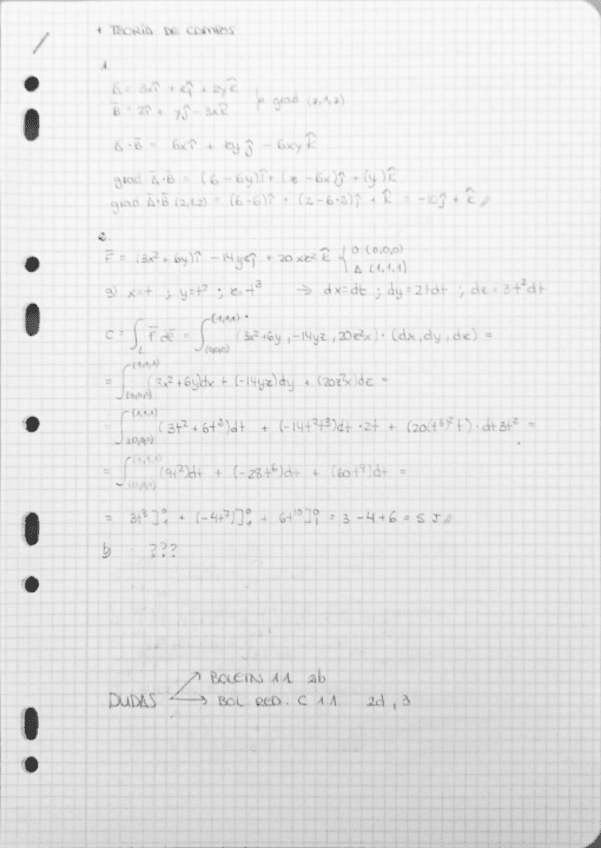 + TEORÍA DE CAMPOS
1.
A = 3xî + zĵ + 2yk̂
B̄ = 2î + yĵ - 3xk̂ grad (2,1,2)
Ā·B̄ = 6xî + zyĵ - 6xyk̂
grad Ā·B̄ = (6-6y)î + (z-6x)ĵ + (y)k̂
grad Ā·B̄ (2,1,2) = (6-6)î + (2-6·2)ĵ + k̂ = -10ĵ + k̂ //
2.
F̄ = (3x²+6y)î - 14yzĵ + 20xz²k̂ { O (0,0,0)
A (1,1,1)
a) x=t ; y=t² ; z=t³ → dx=dt ; dy=2tdt ; dz=3t²dt
C = ∫_L F̄ dr̄ = ∫_(0,0,0)^(1,1,1) (3x²+6y, -14yz, 20z²x)·(dx,dy,dz) =
= ∫_(0,0,0)^(1,1,1) (3x²+6y)dx + (-14yz)dy + (20z²x)dz =
∫_(0,0,0)^(1,1,1) (3t²+6t²)dt + (-14t²t³)dt·2t + (20(t³)²t)·dt3t² =
= ∫_(0,0,0)^(1,1,1) (9t²)dt + (-28t⁶)dt + (60t⁹)dt =
= 3t³]₁⁰ + (-4t⁷)]₁⁰ + 6t¹⁰]₁⁰ = 3-4+6 = 5 J //
b) ???
DUDAS → BOLETIN 11 2b
→ BOL RED. C 11 2d, 3